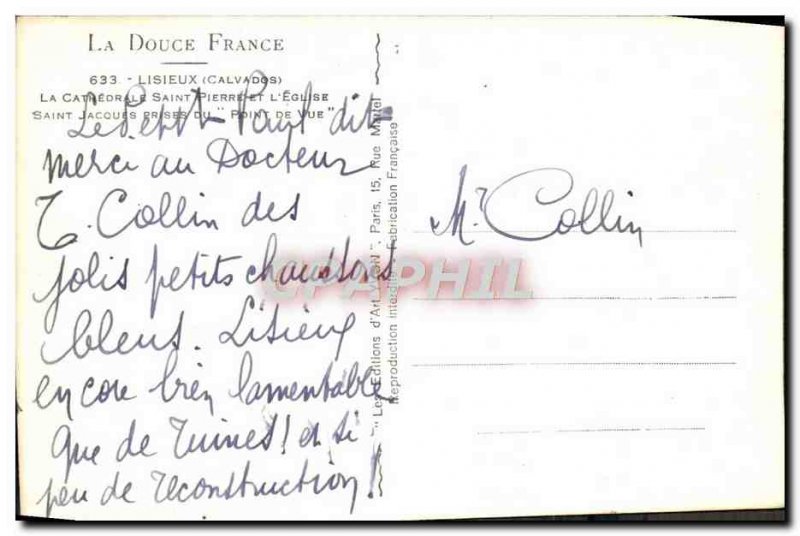 LA DOUCE FRANCE
633. - LISIEUX (CALVADOS)
LA CATHÉDRALE SAINT PIERRE ET L'ÉGLISE
SAINT JACQUES PRISES DU "POINT DE VUE"
Le Petit Paul dit
merci au Docteur
T. Collin des
jolis petits chaussons
bleus. Lisieux
encore bien lamentable
que de ruines! et si
peu de reconstruction!
"Les Editions d'Art YVON". Paris, 15, Rue Martel
Reproduction interdite. Fabrication Française
Mr Collin
CPAPHIL